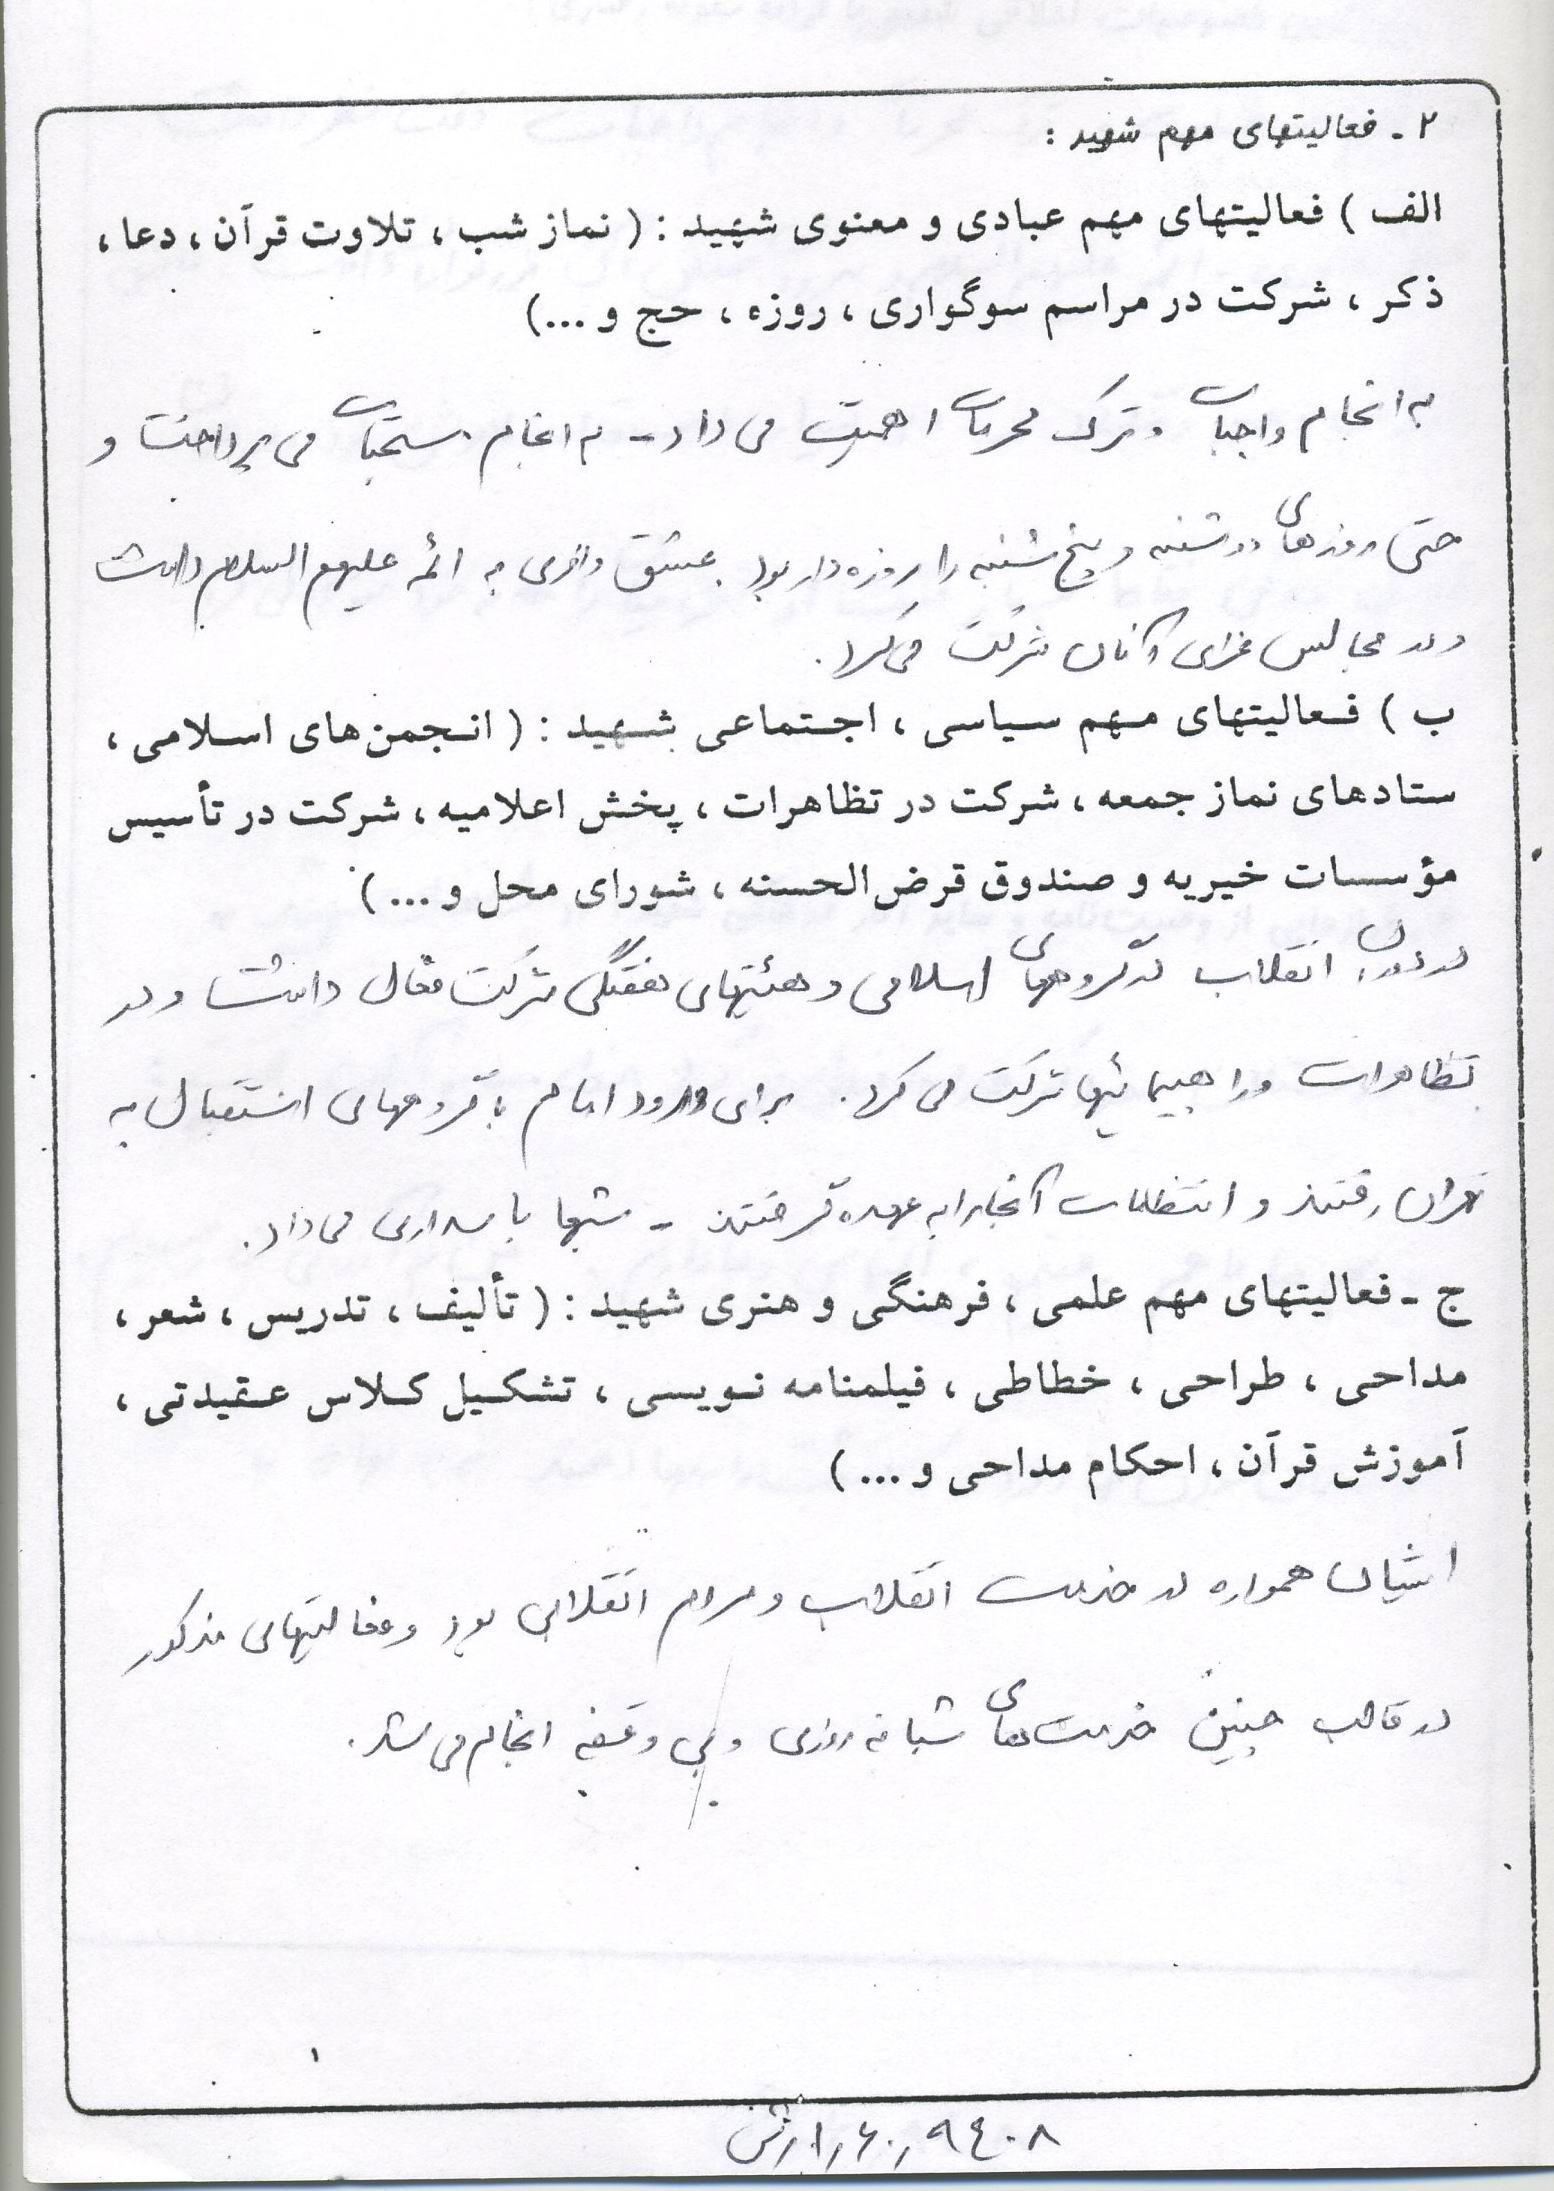 ۲ - فعالیتهای مهم شهید :
الف ) فعالیتهای مهم عبادی و معنوی شهید : ( نماز شب ، تلاوت قرآن ، دعا ،
ذکر ، شرکت در مراسم سوگواری ، روزه ، حج و ...)
به انجام واجبات و ترک محرمات اهمیت می داد - به انجام مستحبات می پرداخت و
حتی روزهای دوشنبه و پنج شنبه را روزه دار بود . عشق وافری به ائمه علیهم السلام داشت
و در مجالس عزای آنان شرکت می کرد .
ب ) فعالیتهای مهم سیاسی ، اجتماعی شهید : ( انجمن های اسلامی ،
ستادهای نماز جمعه ، شرکت در تظاهرات ، پخش اعلامیه ، شرکت در تأسیس
مؤسسات خیریه و صندوق قرض الحسنه ، شورای محل و ... )
در دوران انقلاب در گروههای اسلامی و هئیتهای هفتگی شرکت فعال داشت و در
تظاهرات و راهپیمائیها شرکت می کرد . برای ورود امام با گروههای استقبال به
تهران رفتند و انتظامات آنجا را به عهده گرفتند - شبها پاسداری می داد .
ج - فعالیتهای مهم علمی ، فرهنگی و هنری شهید : ( تألیف ، تدریس ، شعر ،
مداحی ، طراحی ، خطاطی ، فیلمنامه نویسی ، تشکیل کلاس عقیدتی ،
آموزش قرآن ، احکام مداحی و ... )
ایشان همواره در خدمت انقلاب و مردم انقلابی بود و فعالیتهای مذکور
در قالب چنین خدمت های شبانه روزی و بی وقفه انجام می شد .
۱